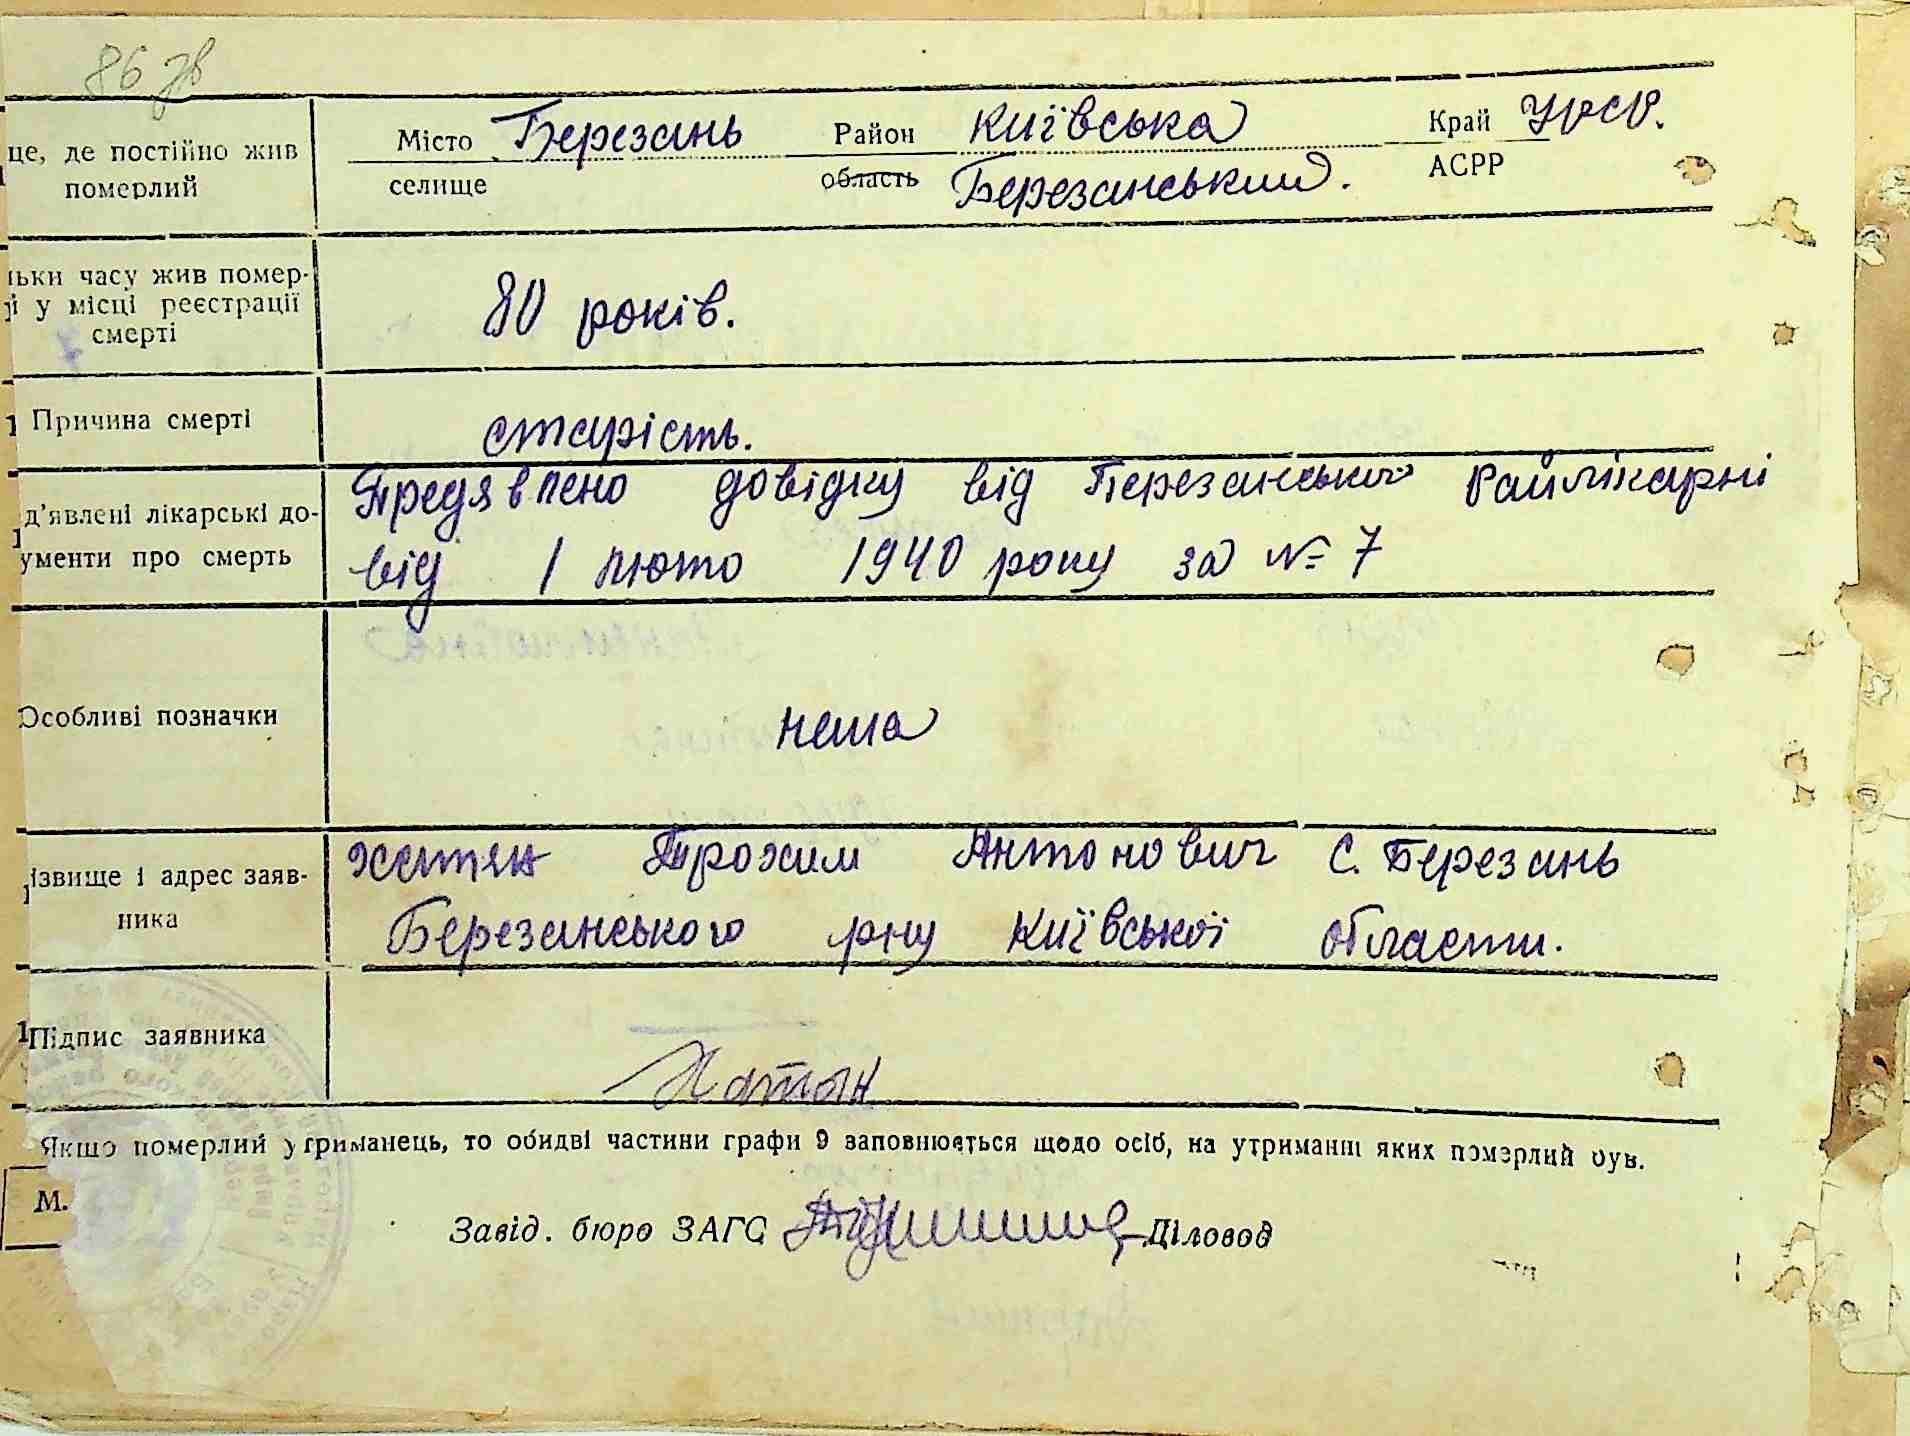 86 зв
це, де постійно жив
померлий
Місто Березань Район Київська Край УРСР.
селище область Березанський. АСРР
льки часу жив помер-
й у місці реєстрації
смерті
80 років.
Причина смерті
старість.
д'явлені лікарські до-
ументи про смерть
Предявлено довідку від Березанської Райлікарні
від 1 люто 1940 року за № 7
Особливі позначки
нема
ізвище і адрес заяв-
ника
Хатян Трохим Антонович С. Березань
Березанського рну Київської области.
Підпис заявника
Хатян
Якщо померлий утриманець, то обидві частини графи 9 заповнюється щодо осіб, на утриманні яких померлий був.
М.
Завід. бюро ЗАГС Діловод